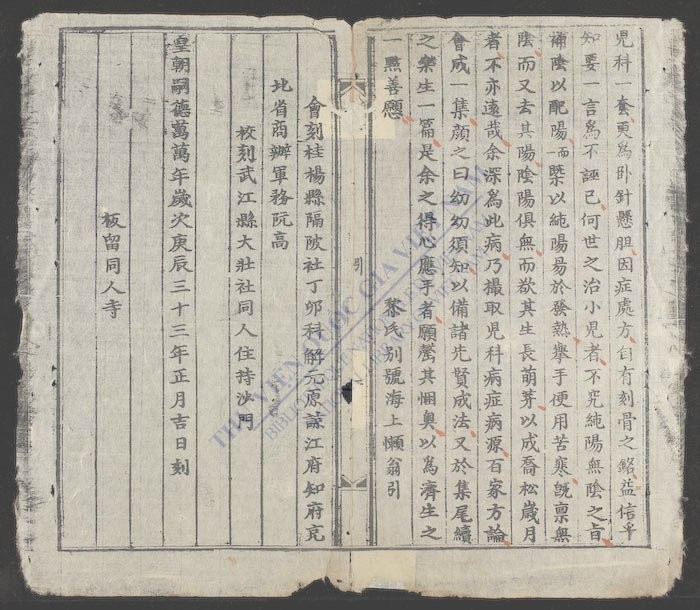 兒科奎更為卧針懸胆因症處方自有刻骨之銘益信乎
知要一言為不誣已何世之治小兒者不究純陽無陰之旨
補陰以配陽而槩以純陽易於發熱舉手便用苦寒既禀無
陰而又去其陽陰陽俱無而欲其生長萌芽以成喬松歲月
者不亦遠哉余深為此病乃撮取兒科病症病源百家方論
會成一集顏之曰幼幼須知以備諸先賢成法又於集尾續
之樂生一篇是余之得心應手者願罄其悃奧以為濟生之
一點善應
黎氏别號海上懶翁引
引
會刻桂楊縣隔陂社丁卯科解元原諒江府知府充
北省商辦軍務阮高
校刻武江縣大壯社同人住持沙門
皇朝嗣德萬萬年歲次庚辰三十三年正月吉日刻
板留同人寺
THƯ VIỆN QUỐC GIA VIỆT NAM